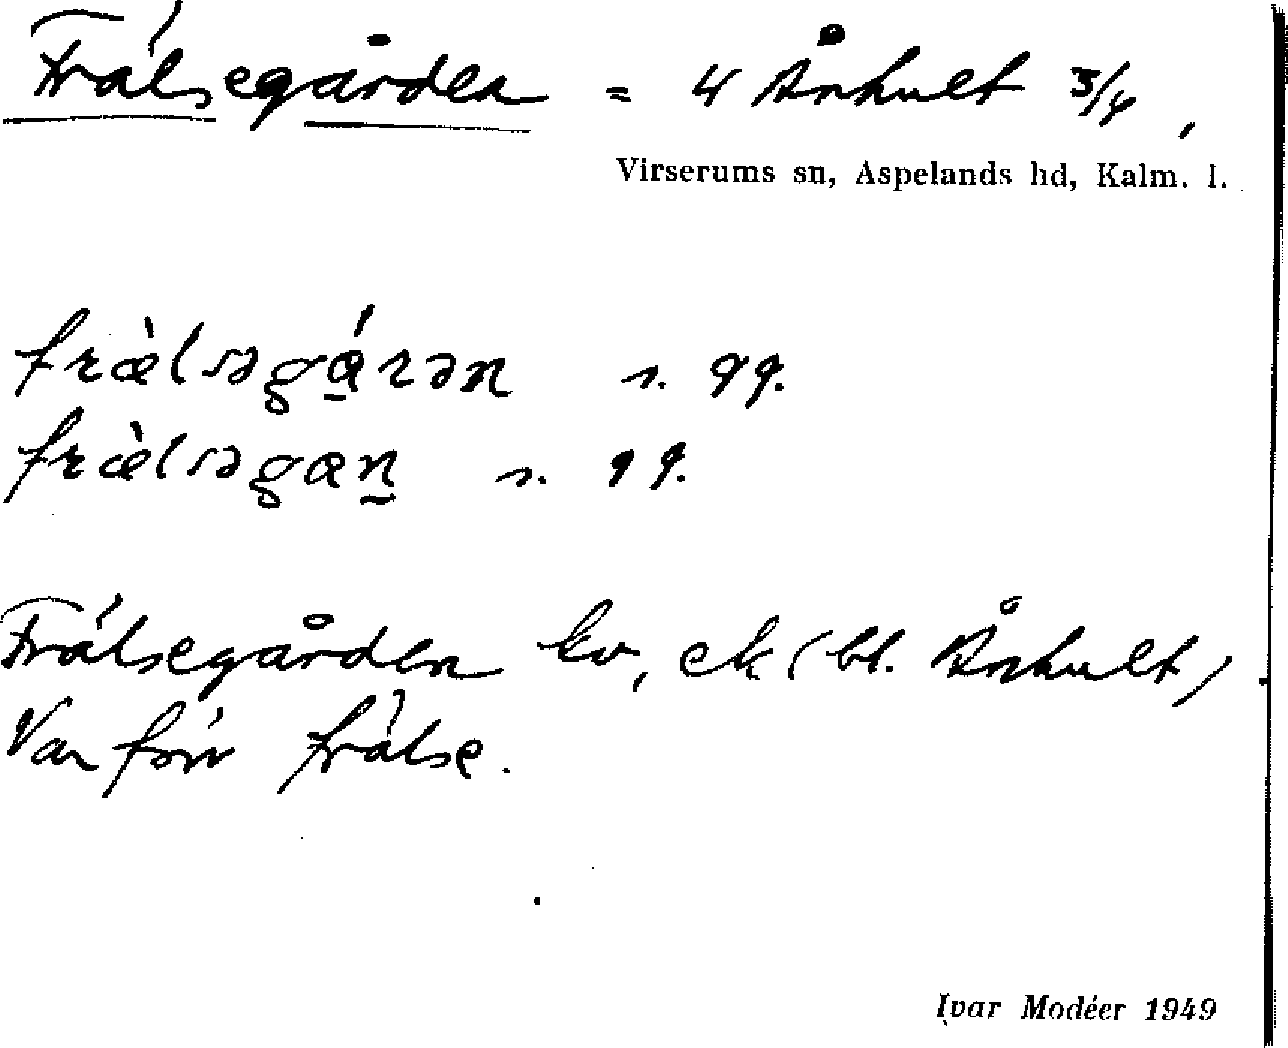 Frälsegården = 4 Ånhult 3/4,
Virserums sn, Aspelands hd, Kalm. l.
fræ̀lsəgá̱rən s. gg.
fræ̀lsəgaṉ s. gg.
Frälsegården kv, ek (bl. Ånhult).
Var förr frälse.
Ivar Modéer 1949